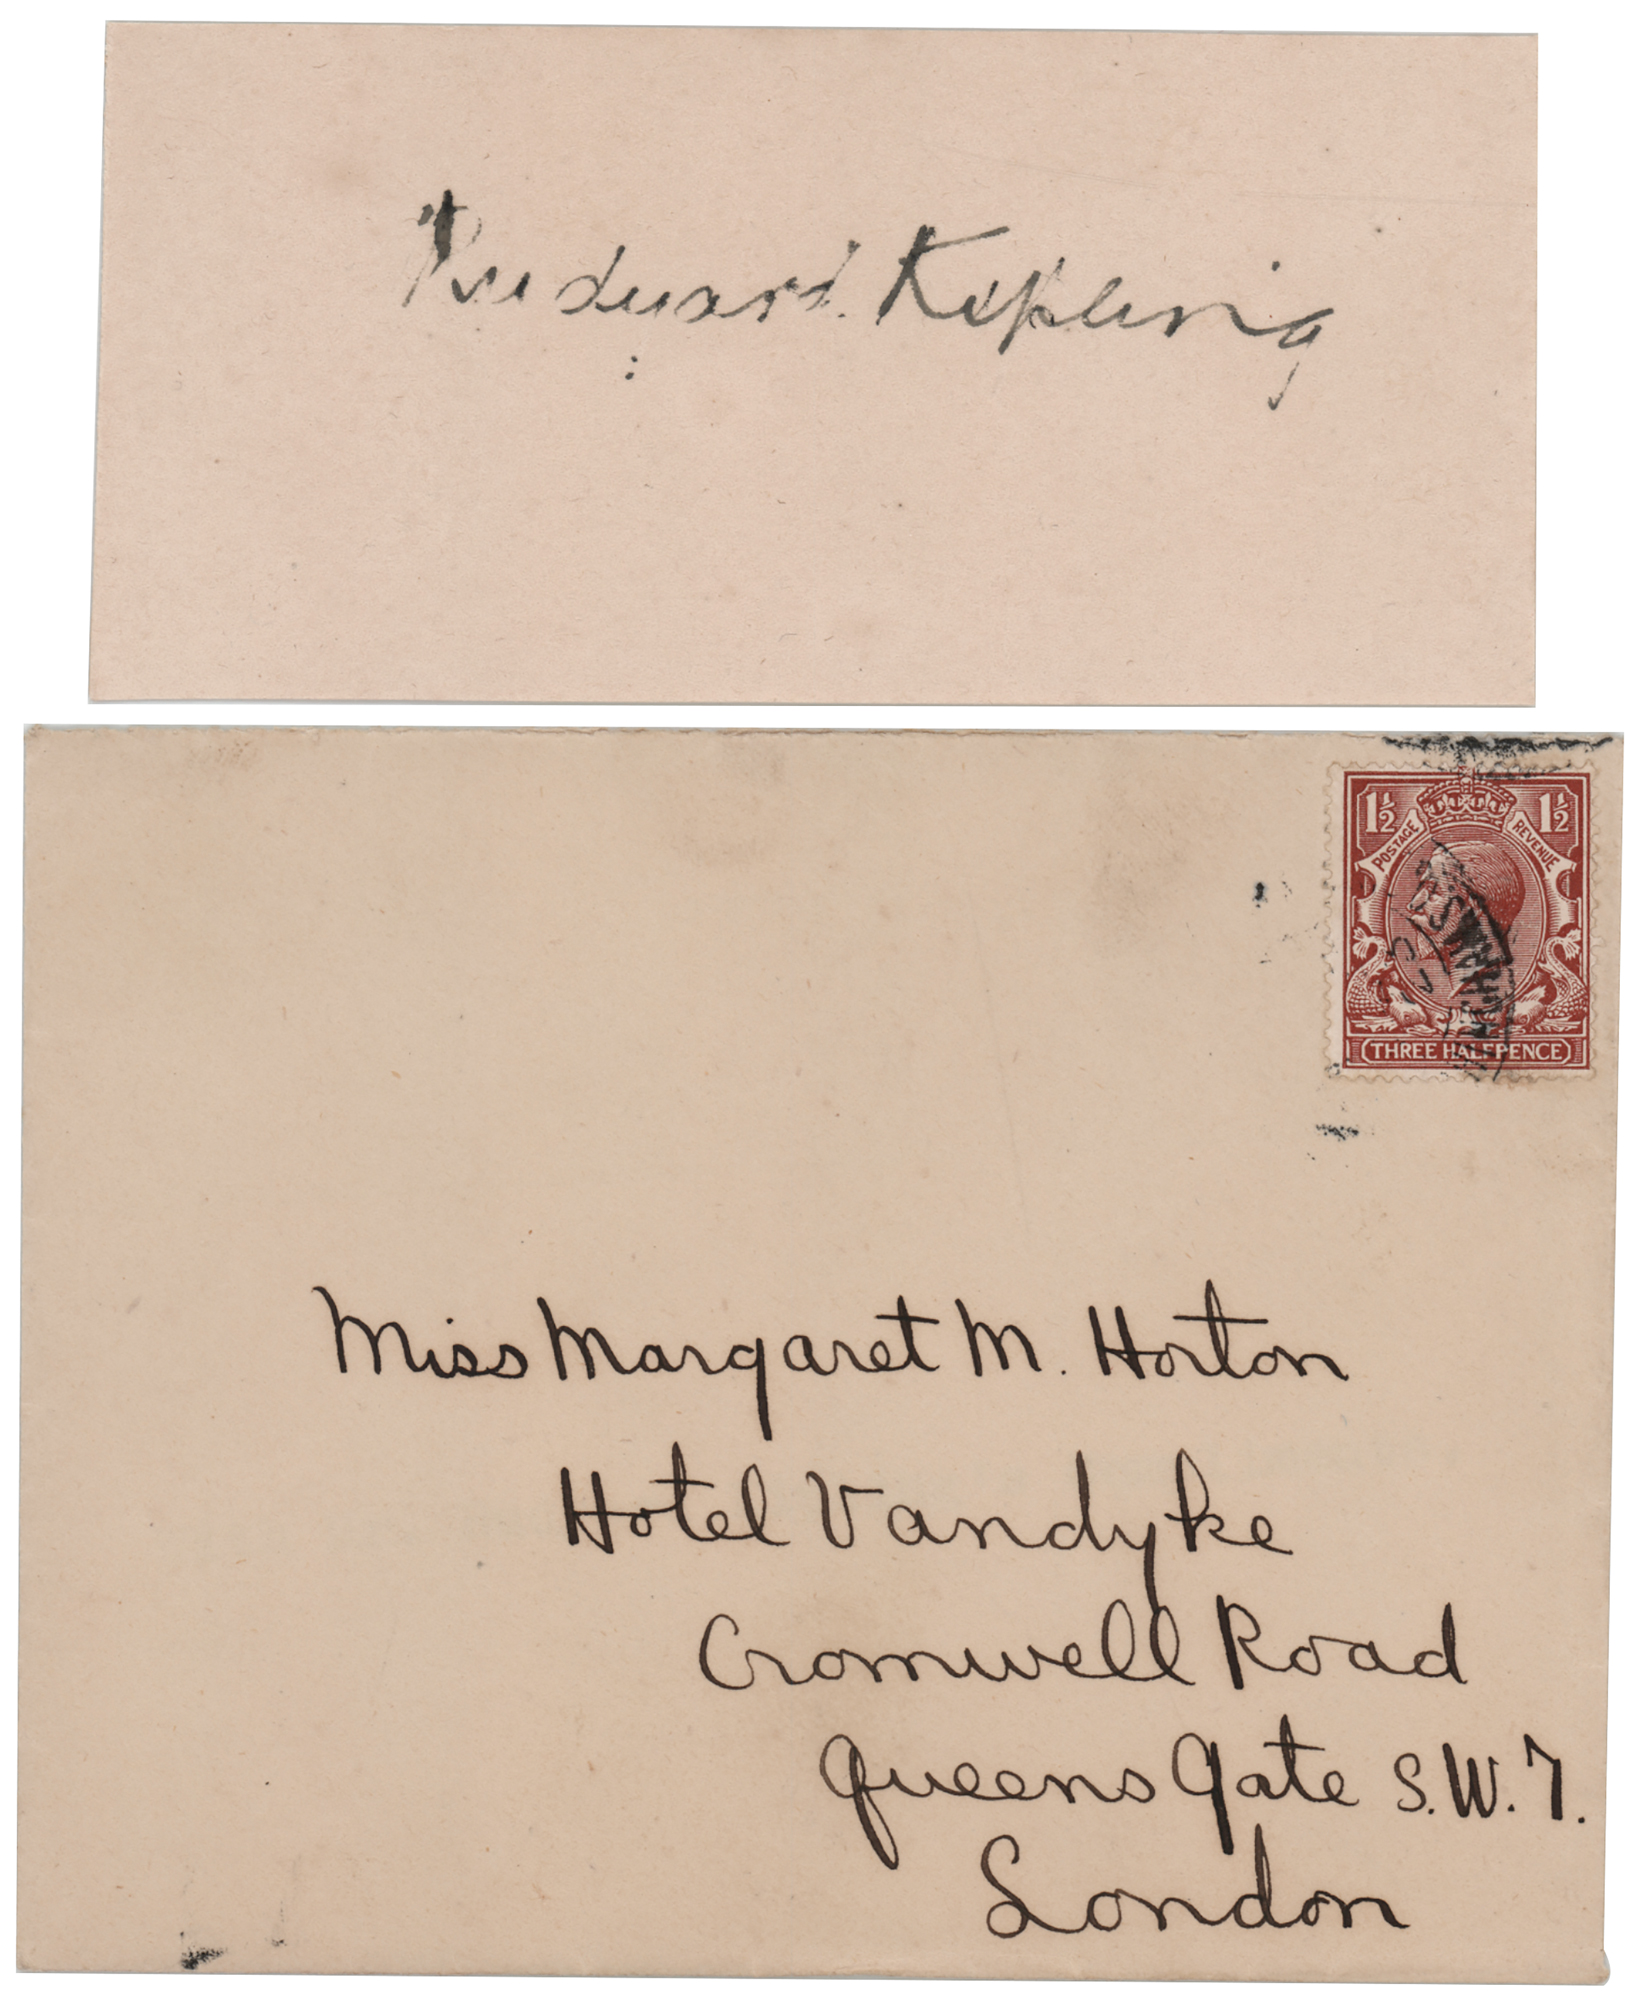 Rudyard Kipling
1½ 1½
POSTAGE REVENUE
THREE HALFPENCE
Miss Margaret M. Horton
Hotel Vandyke
Cromwell Road
Queens Gate S.W.7.
London